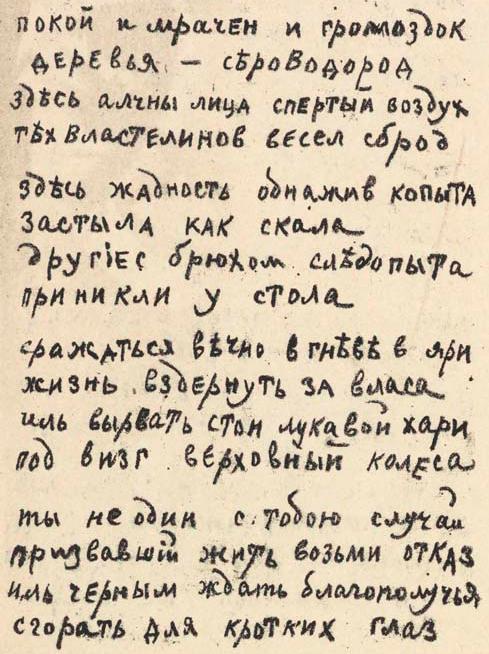 покой и мрачен и громоздок
деревья — сѣроводород
здѣсь алчны лица спертый воздух
тѣх властелинов весел сброд
здѣсь жадность обнажив копыта
застыла как скала
другіе с брюхом слѣдопыта
приникли у стола
сражаться вѣчно в гнѣвѣ в яри
жизнь вздернуть за власа
иль вырвать стон лукавой хари
под визг верховный колеса
ты не один с тобою случай
призвавшій жить возьми отказ
иль черным ждать благополучья
сгорать для кротких глаз